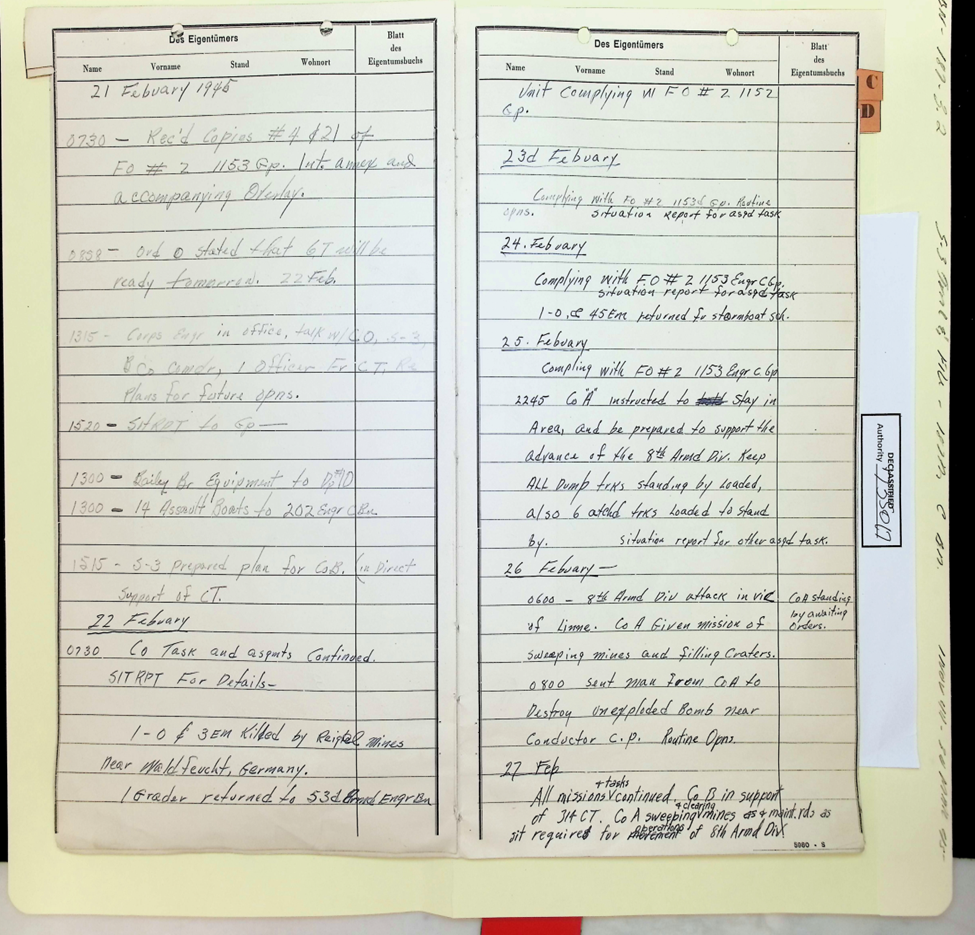 Des Eigentümers
Blatt des Eigentumsbuchs
Name Vorname Stand Wohnort
21 Febuary 1945
0730 – Rec'd Copies # 4 & 21 of
FO # 2 1153 Gp. Int. annex and
accompanying Overlay.
Ord O stated that 6T will be
ready tomorrow. 22 Feb.
1315 – Corps Engr in office, talk w/ C.O, S-3,
B Co Comdr, 1 Officer Fr C.T. Re
Plans for future opns.
1520 – SITRPT to Gp —
1300 – Bailey Br Equipment to
1300 – 14 Assault Boats to 202 Engr C Bn
1515 – S-3 prepared plan for CoB. (in Direct
Support of CT.
22 Febuary
0730 Co Task and asgmts Continued.
SITRPT For Details–
1-O & 3EM Killed by Reigtel Mines
Near Waldfeucht, Germany.
1 Grader returned to 53d Armd Engr Bn
Des Eigentümers
Blatt des Eigentumsbuchs
Name Vorname Stand Wohnort
Unit Complying W FO # 2 1152
Gp.
23d Febuary
Complying with FO #2 1153d Gp. Routine
opns. situation report for asgd task
24. Febuary
Complying with F.O # 2 1153 Engr C Gp.
situation report for asgd task
1-O, & 45 Em returned fr stormboat sch.
25. Febuary
Compling with FO # 2 1153 Engr C. Gp
2245 Co "A" instructed to Stay in
Area, and be prepared to support the
advance of the 8th Armd Div. Keep
ALL Dump trks standing by Loaded,
also 6 atchd trks Loaded to stand
by. situation report for other asgd task.
26 Febuary —
0600 – 8th Armd Div attack in vic
of Linne. Co A Given mission of
sweeping mines and filling Craters.
CoA standing
by awaiting
Orders.
0800 sent man from CoA to
Destroy unexploded Bomb near
Conductor C.P. Routine Opns.
27 Feb
+ tasks
All missions continued. Co B in support
+ clearing
of 314 CT. Co A sweeping mines as + maint. rds as
operations
sit required for movement of 8th Armd Div
5060 - S
C
D
DECLASSIFIED
Authority 735017